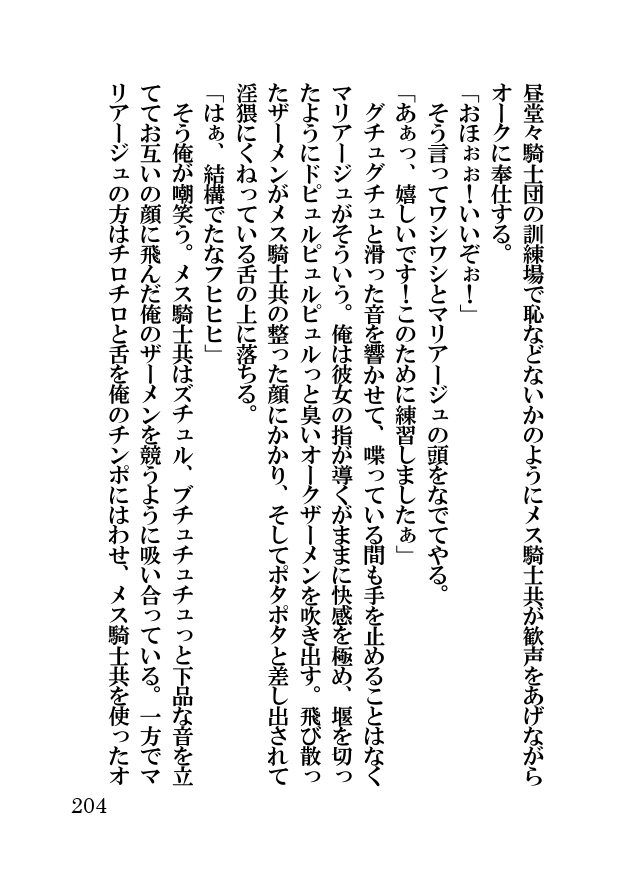 昼堂々騎士団の訓練場で恥などないかのようにメス騎士共が歓声をあげながら
オークに奉仕する。
「おほぉぉ！いいぞぉ！」
そう言ってワシワシとマリアージュの頭をなでてやる。
「あぁっ、嬉しいです！このために練習しましたぁ」
グチュグチュと滑った音を響かせて、喋っている間も手を止めることはなく
マリアージュがそういう。俺は彼女の指が導くがままに快感を極め、堰を切っ
たようにドピュルピュルピュルっと臭いオークザーメンを吹き出す。飛び散っ
たザーメンがメス騎士共の整った顔にかかり、そしてポタポタと差し出されて
淫猥にくねっている舌の上に落ちる。
「はぁ、結構でたなフヒヒヒ」
そう俺が嘲笑う。メス騎士共はズチュル、ブチュチュチュっと下品な音を立
ててお互いの顔に飛んだ俺のザーメンを競うように吸い合っている。一方でマ
リアージュの方はチロチロと舌を俺のチンポにはわせ、メス騎士共を使ったオ
204